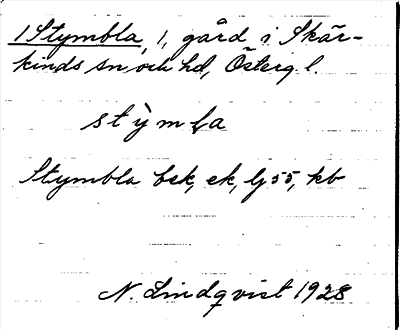 1 Stymbla, 1, gård i Skär-
kinds sn och hd, Österg l.
stỳmla
Stymbla bsk, ek, lj 55, kb
N. Lindqvist 1928